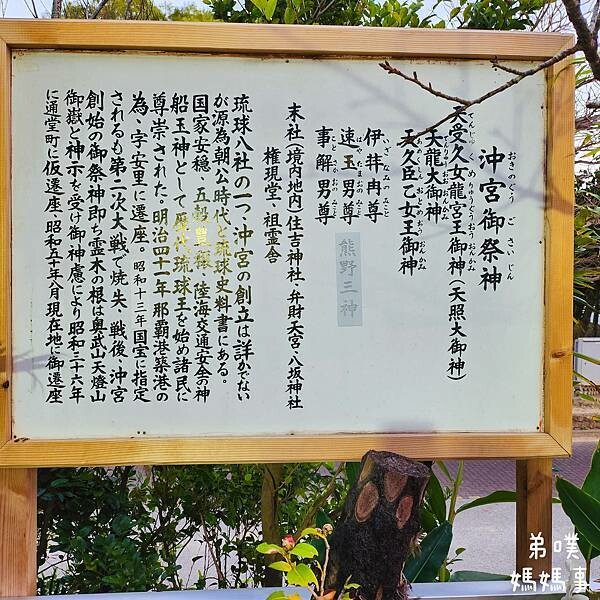 沖宮御祭神
おきのぐう ご さいじん
天受久女龍宮王御神（天照大御神）
天龍大御神
天久臣乙女王御神
伊弉冉尊
速玉男尊
事解男尊
熊野三神
末社（境内地内）住吉神社・弁財天宮・八坂神社
権現堂・祖霊舎
琉球八社の一つ、沖宮の創立は詳かでない
が源為朝公時代と琉球史料書にある。
国家安穏、五穀豊穣、陸海交通安全の神
船玉神として歴代琉球王を始め諸民に
尊崇された。明治四十一年那覇港築港の
為、字安里に遷座。昭和十三年国宝に指定
されるも第二次大戦で焼失、戦後、沖宮
創始の御祭神即ち霊木の根は奥武山天燈山
御嶽と神示を受け御神慮により昭和三十六年
に通堂町に仮遷座・昭和五十年八月現在地に御遷座
弟噗
媽媽事